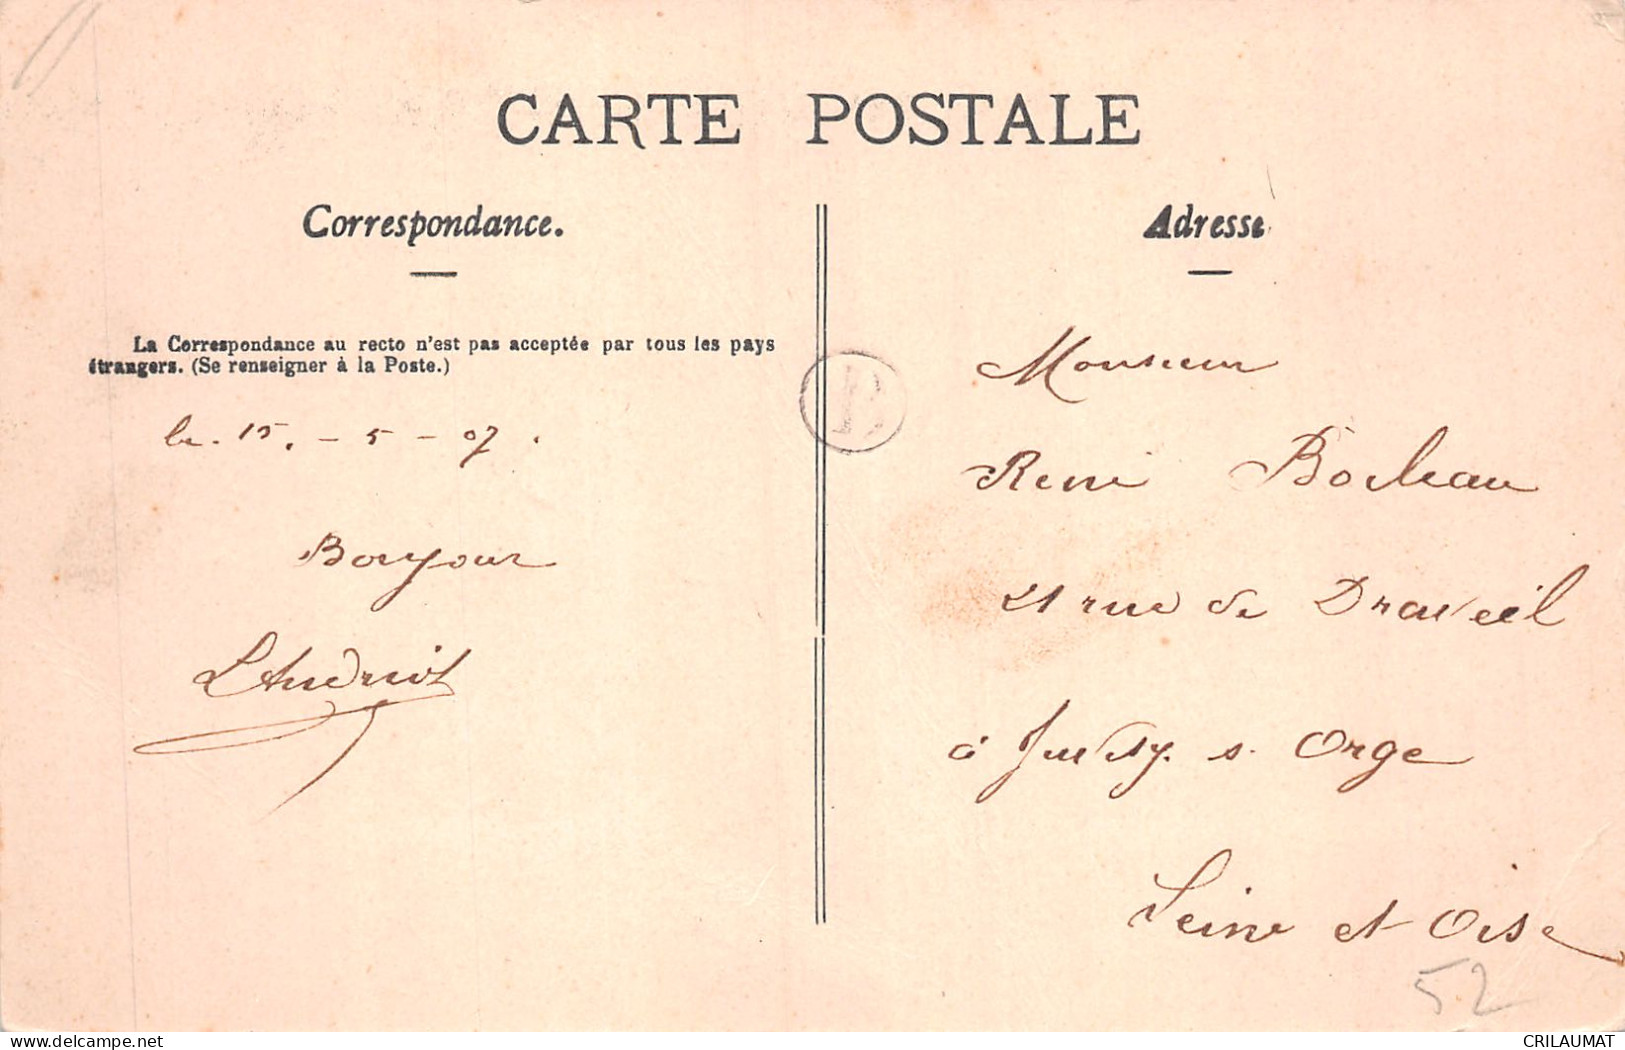 CARTE POSTALE
Correspondance.
La Correspondance au recto n'est pas acceptée par tous les pays
étrangers. (Se renseigner à la Poste.)
le. 15. - 5 - 07.
Bonjour
Adresse
B
Monsieur
René
21 rue de Draveil
à Juvisy. s. Orge
Seine et Oise
52
delcampe.net
CRILAUMAT